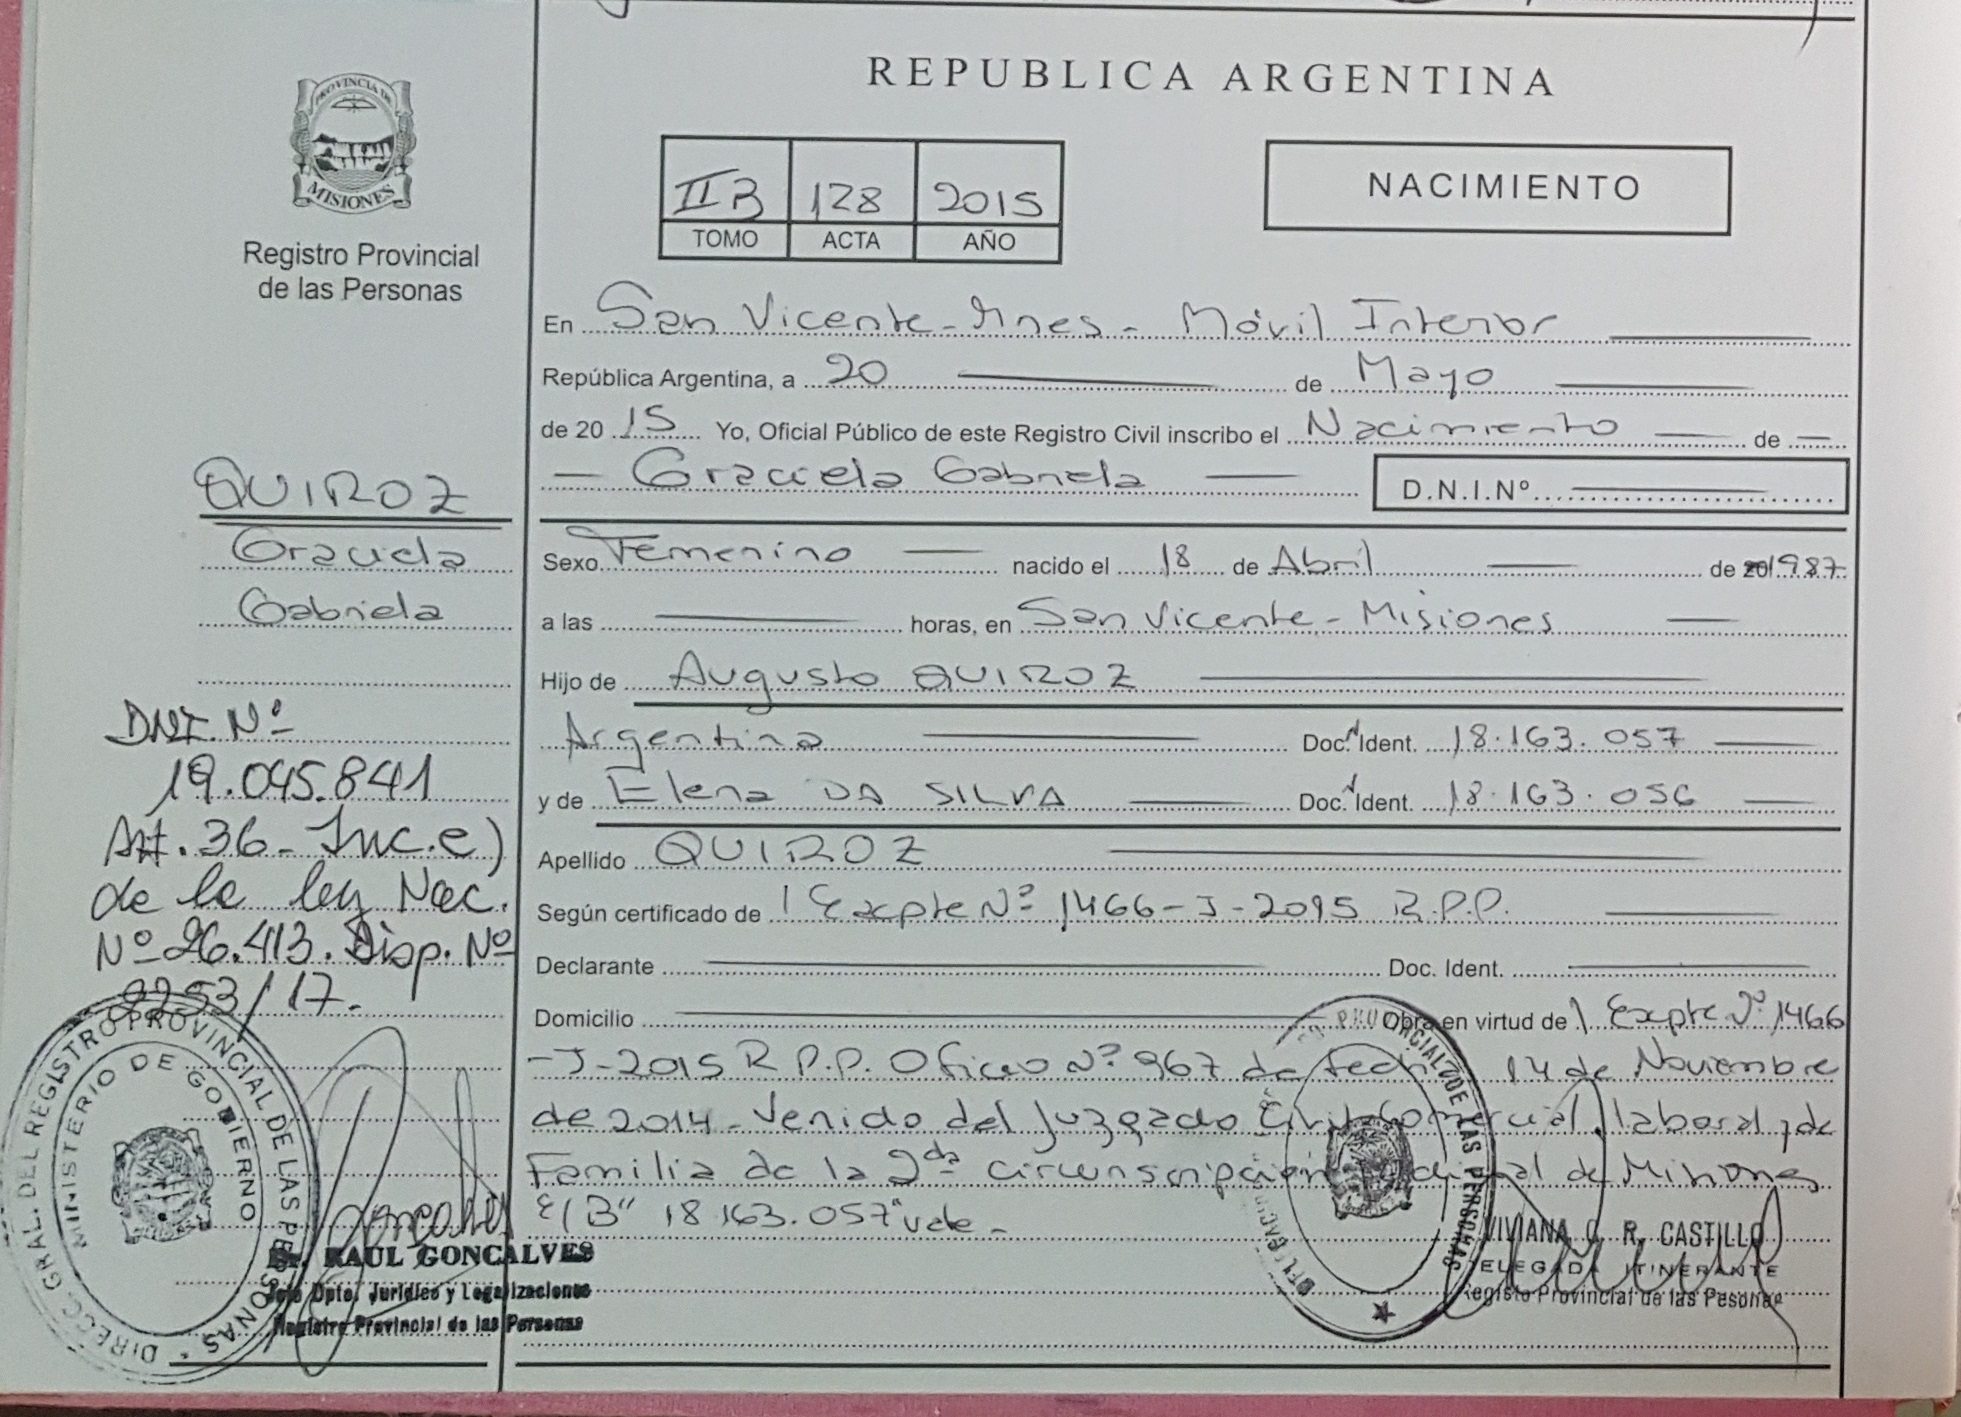 PROVINCIA DE
MISIONES
Registro Provincial
de las Personas
QUIROZ
Graciela
Gabriela
DNI. Nº
19.045.841
Art. 36 - Inc. e)
de la ley Nac.
Nº 26.413. Disp. Nº
2253/17.
DIRECC. GRAL. DEL REGISTRO PROVINCIAL DE LAS PERSONAS
MINISTERIO DE GOBIERNO
RAUL GONCALVES
Jefe Dpto. Jurídico y Legalizaciones
Registro Provincial de las Personas
REPUBLICA ARGENTINA
IIB 128 2015
TOMO ACTA AÑO
NACIMIENTO
En San Vicente - Mnes - Móvil Interior
República Argentina, a 20 de Mayo
de 20 15 Yo, Oficial Público de este Registro Civil inscribo el Nacimiento de
Graciela Gabriela D.N.I.Nº
Sexo Femenino nacido el 18 de Abril de 20 1987
a las horas, en San Vicente - Misiones
Hijo de Augusto QUIROZ
Argentina Doc. Ident. 18.163.057
y de Elena DA SILVA Doc. Ident. 18.163.056
Apellido QUIROZ
Según certificado de Expte Nº 1466-J-2015 R.P.P.
Declarante Doc. Ident.
Domicilio Obra en virtud de Expte Nº 1466
-J-2015 R.P.P. Oficio Nº 967 de fecha 14 de Noviembre
de 2014 - Venido del Juzgado Civil Comercial, laboral y de
Familia de la 2da circunscripción Judicial de Misiones
E/B" 18.163.057" vale -
VIVIANA R. CASTILLO
DELEGADA ITINERANTE
Registo Provincial de las Pesonas